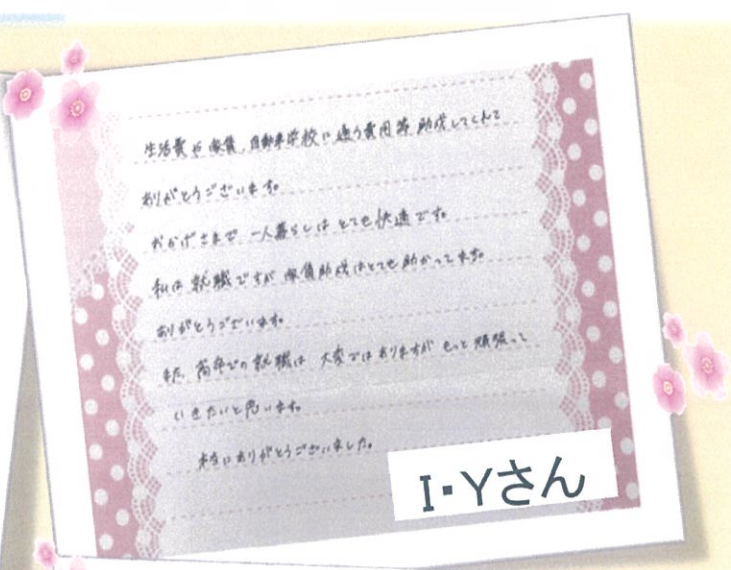 生活費や家賃、自動車学校に通う費用等 助成してくれて
ありがとうございます。
おかげさまで 一人暮らしは とても快適です。
私は 就職ですが 家賃助成はとても助かってます。
ありがとうございます。
また、高卒での就職は 大変ではありますが もっと頑張って
いきたいと思います。
本当にありがとうございました。
I・Yさん